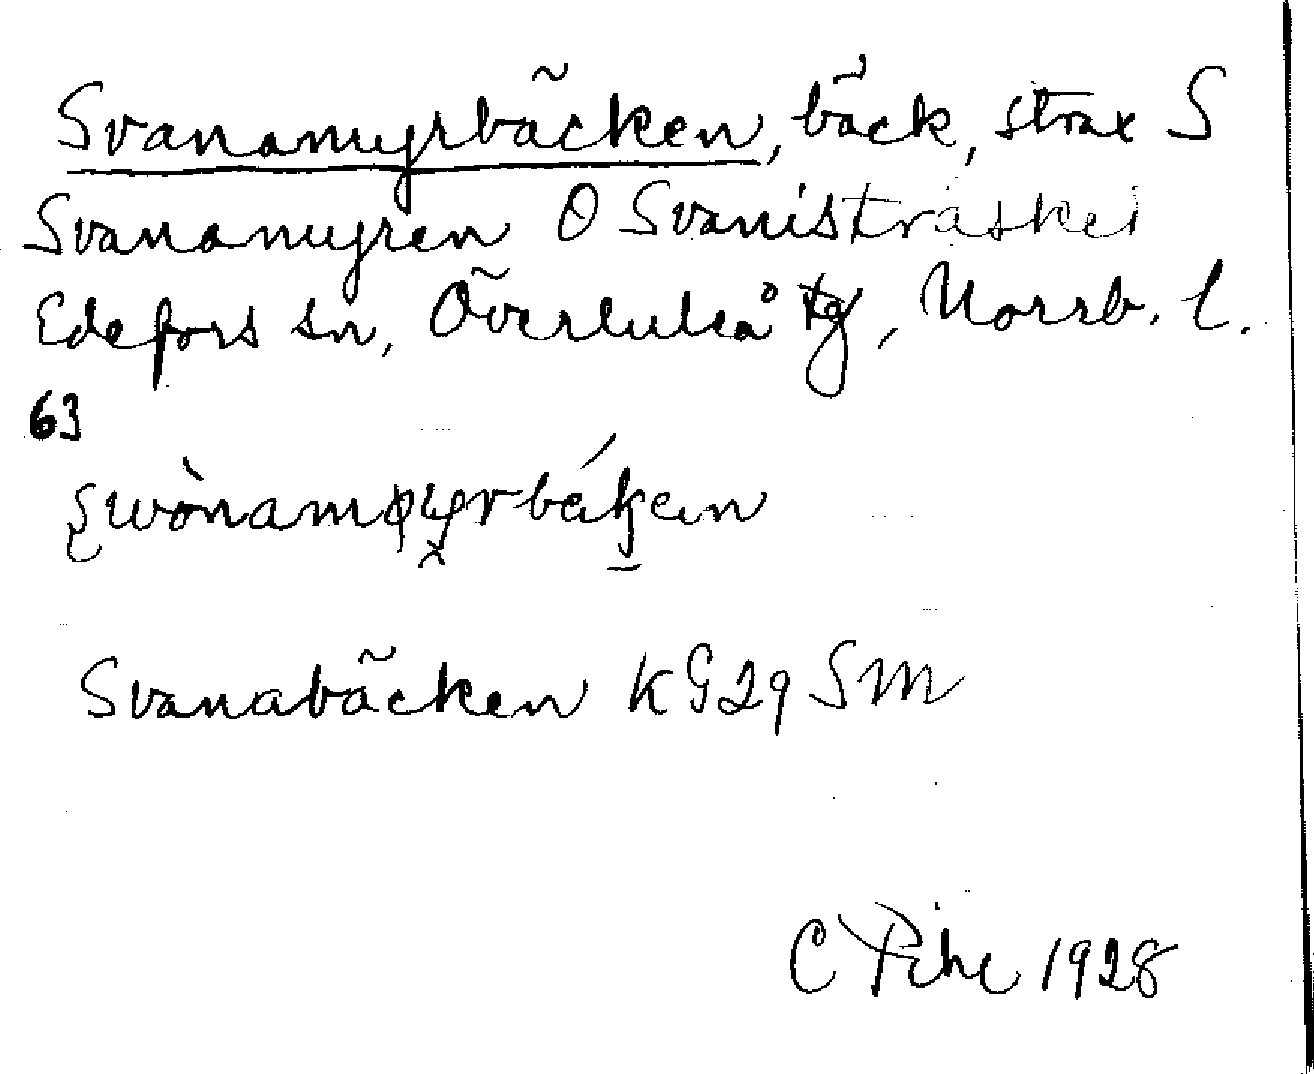 Svanamyrbäcken, bäck, strax S
Svanamyren O Svanisträsket
Edefors sn, Överluleå tg, Norrb. l.
63
Svanabäcken KG29 SM
C Pihl 1928